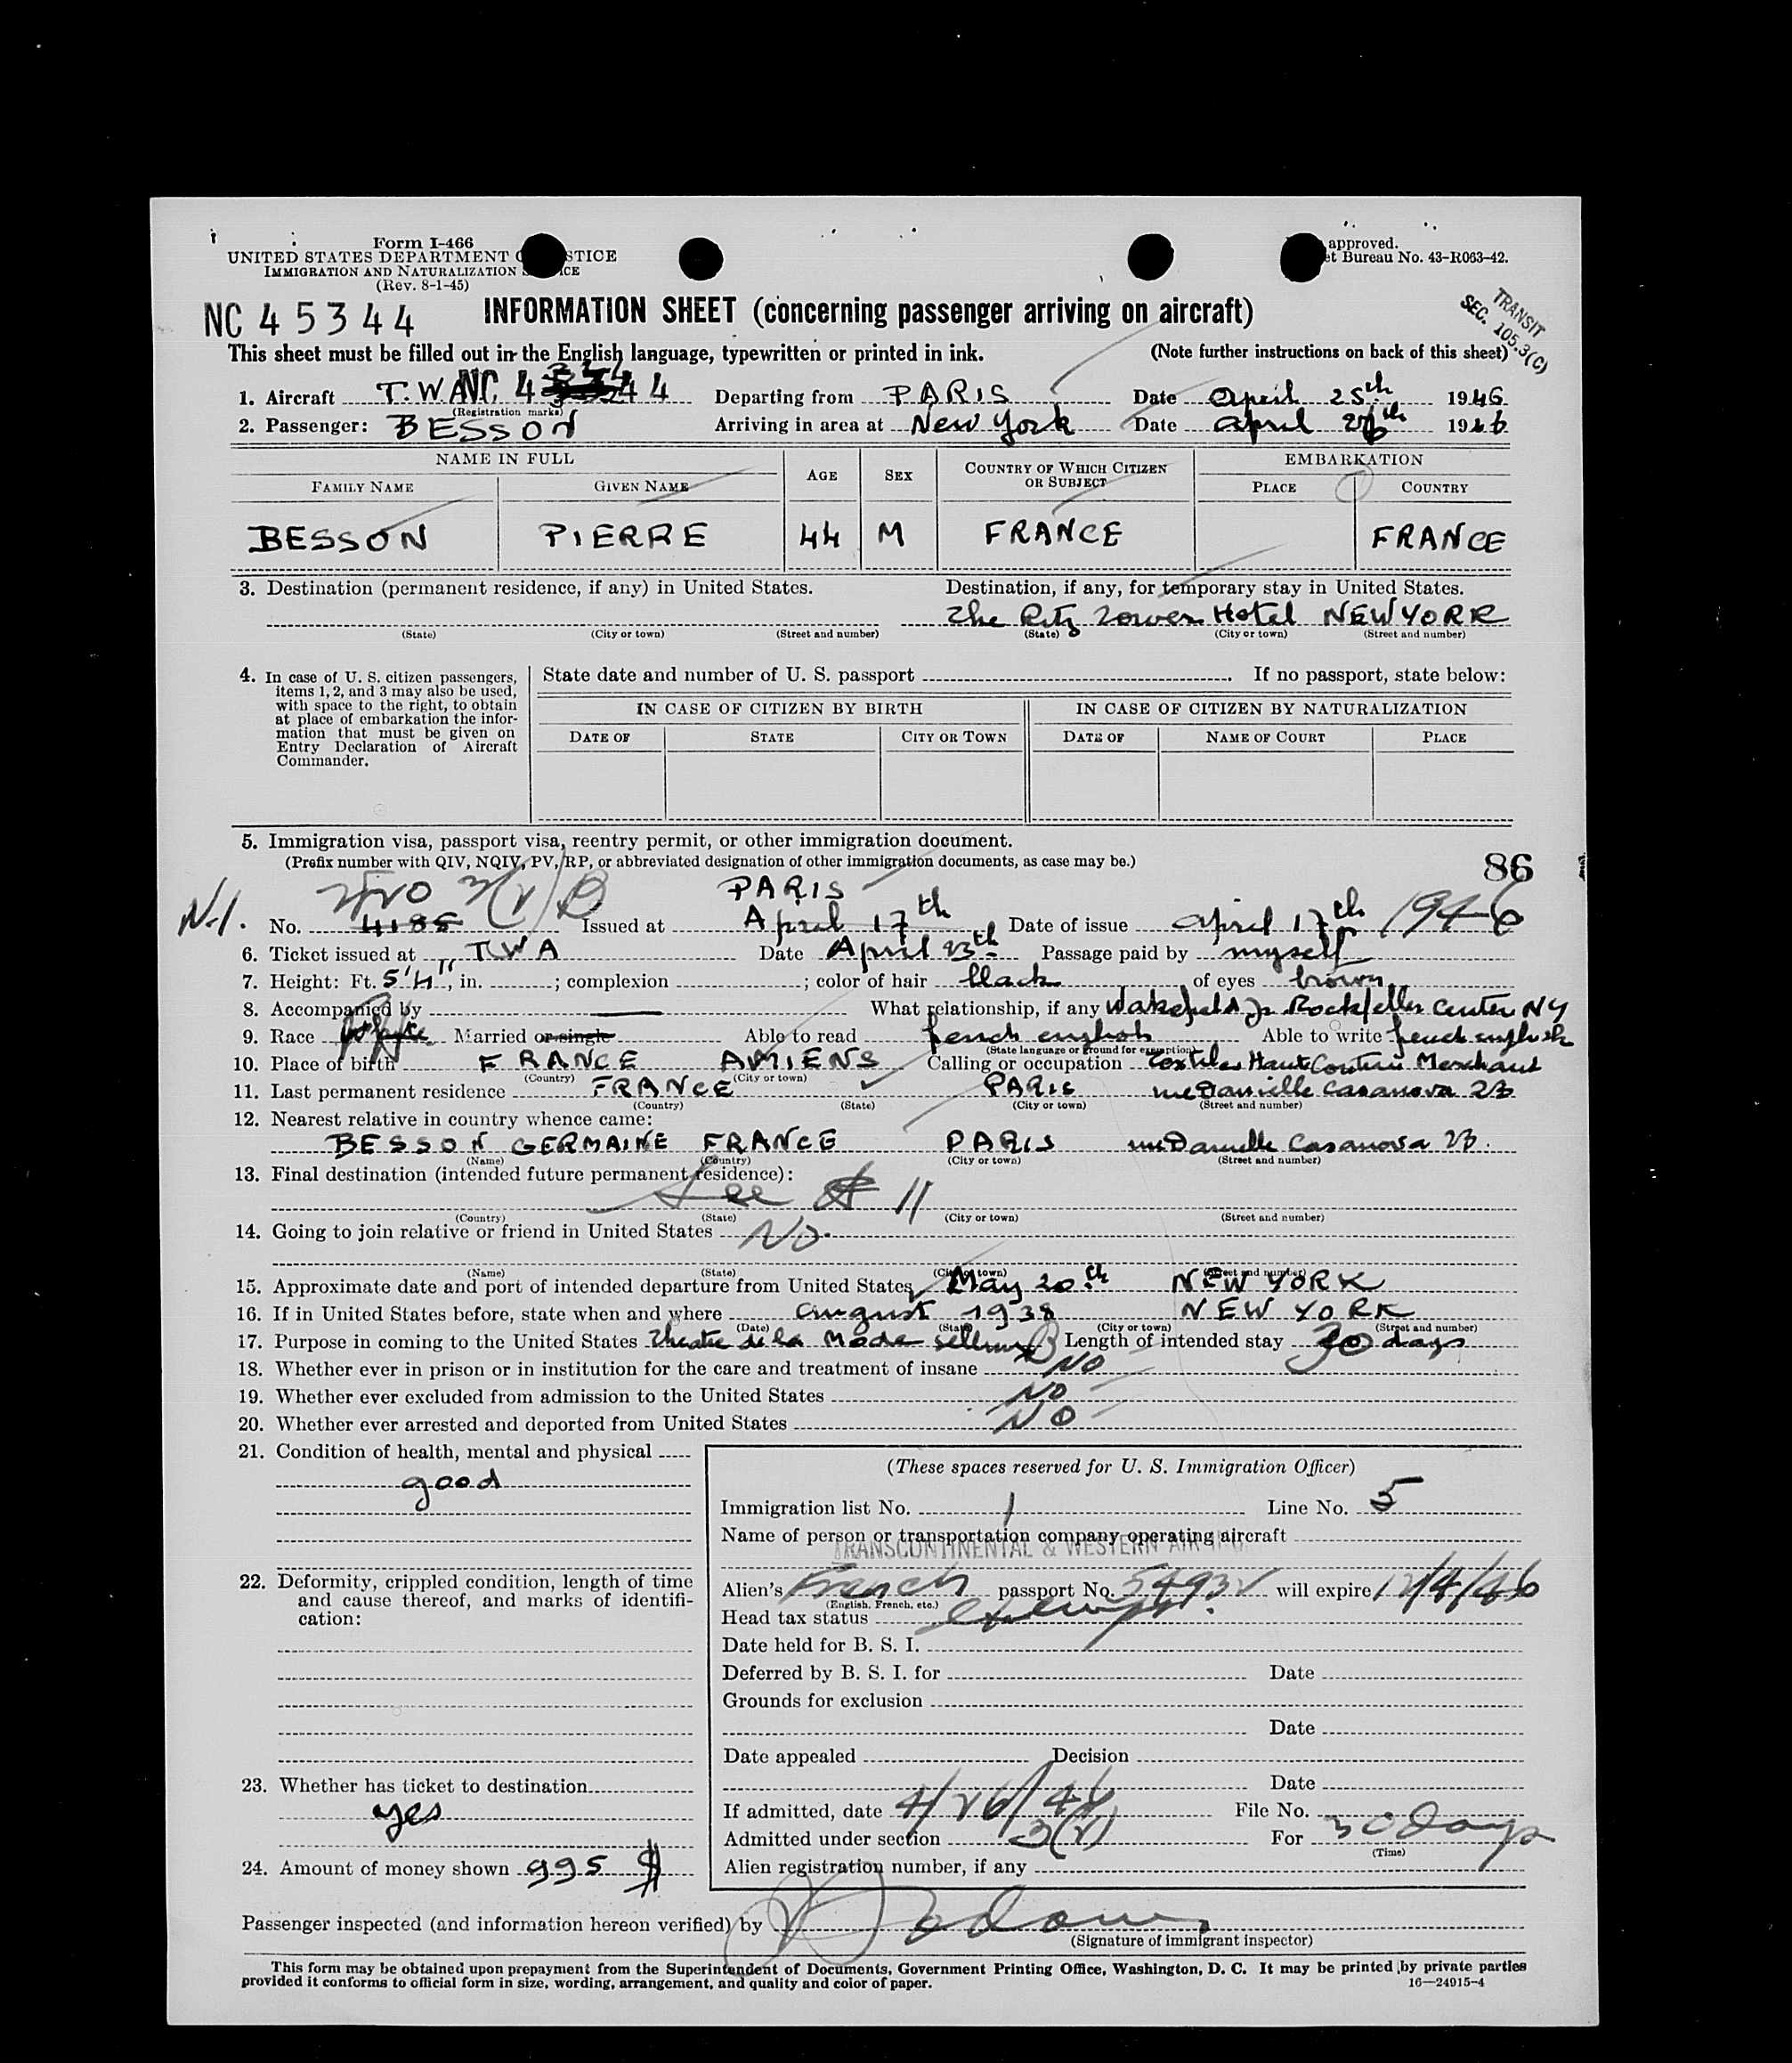 Form I-466
UNITED STATES DEPARTMENT O STICE
IMMIGRATION AND NATURALIZATION S ICE
(Rev. 8-1-45)
approved.
et Bureau No. 43-R063-42.
NC 45344
INFORMATION SHEET (concerning passenger arriving on aircraft)
TRANSIT
SEC. 105.3(C)
This sheet must be filled out in the English language, typewritten or printed in ink. (Note further instructions on back of this sheet)
1. Aircraft T.W.A NC 45344 Departing from PARIS Date April 25th 1946
(Registration marks)
2. Passenger: BESSON Arriving in area at New York Date April 26th 1946
NAME IN FULL AGE SEX COUNTRY OF WHICH CITIZEN OR SUBJECT EMBARKATION
FAMILY NAME GIVEN NAME PLACE COUNTRY
BESSON PIERRE 44 M FRANCE FRANCE
3. Destination (permanent residence, if any) in United States. Destination, if any, for temporary stay in United States.
The Ritz Tower Hotel NEW YORK
(State) (City or town) (Street and number) (State) (City or town) (Street and number)
4. In case of U. S. citizen passengers, items 1, 2, and 3 may also be used, with space to the right, to obtain at place of embarkation the information that must be given on Entry Declaration of Aircraft Commander.
State date and number of U. S. passport If no passport, state below:
IN CASE OF CITIZEN BY BIRTH IN CASE OF CITIZEN BY NATURALIZATION
DATE OF STATE CITY OR TOWN DATE OF NAME OF COURT PLACE
5. Immigration visa, passport visa, reentry permit, or other immigration document.
(Prefix number with QIV, NQIV, PV, RP, or abbreviated designation of other immigration documents, as case may be.)
86
PARIS
No. 4185 Issued at April 17th Date of issue April 17th 1946
6. Ticket issued at TWA Date April 23th Passage paid by myself
7. Height: Ft. 5'4", in. ; complexion ; color of hair black of eyes brown
8. Accompanied by What relationship, if any Wakefield Jr Rockfeller Center NY
9. Race Married or single Able to read french english Able to write french english
(State language or ground for exemption)
10. Place of birth FRANCE AMIENS Calling or occupation Textiles Haute Couture Merchant
(Country) (City or town)
11. Last permanent residence FRANCE PARIS rue Danielle Casanova 23
(Country) (State) (City or town) (Street and number)
12. Nearest relative in country whence came:
BESSON GERMAINE FRANCE PARIS rue Danielle Casanova 23.
(Name) (Country) (City or town) (Street and number)
13. Final destination (intended future permanent residence):
See # 11
(Country) (State) (City or town) (Street and number)
14. Going to join relative or friend in United States No.
(Name) (State) (City or town) (Street and number)
15. Approximate date and port of intended departure from United States May 20th NEW YORK
16. If in United States before, state when and where August 1938 NEW YORK
(Date) (State) (City or town) (Street and number)
17. Purpose in coming to the United States Theatre de la Mode selling B Length of intended stay 30 days
18. Whether ever in prison or in institution for the care and treatment of insane NO
19. Whether ever excluded from admission to the United States NO
20. Whether ever arrested and deported from United States NO
21. Condition of health, mental and physical
good
22. Deformity, crippled condition, length of time and cause thereof, and marks of identification:
23. Whether has ticket to destination
yes
24. Amount of money shown 995 $
(These spaces reserved for U. S. Immigration Officer)
Immigration list No. 1 Line No. 5
Name of person or transportation company operating aircraft
TRANSCONTINENTAL & WESTERN AIR INC.
Alien's French passport No. 54932 will expire 12/4/46
(English, French, etc.)
Head tax status exempt.
Date held for B. S. I.
Deferred by B. S. I. for Date
Grounds for exclusion
Date
Date appealed Decision
Date
If admitted, date 4/26/46 File No.
Admitted under section 3(2) For 30 days
(Time)
Alien registration number, if any
Passenger inspected (and information hereon verified) by
(Signature of immigrant inspector)
This form may be obtained upon prepayment from the Superintendent of Documents, Government Printing Office, Washington, D. C. It may be printed by private parties
provided it conforms to official form in size, wording, arrangement, and quality and color of paper. 16—24915-4